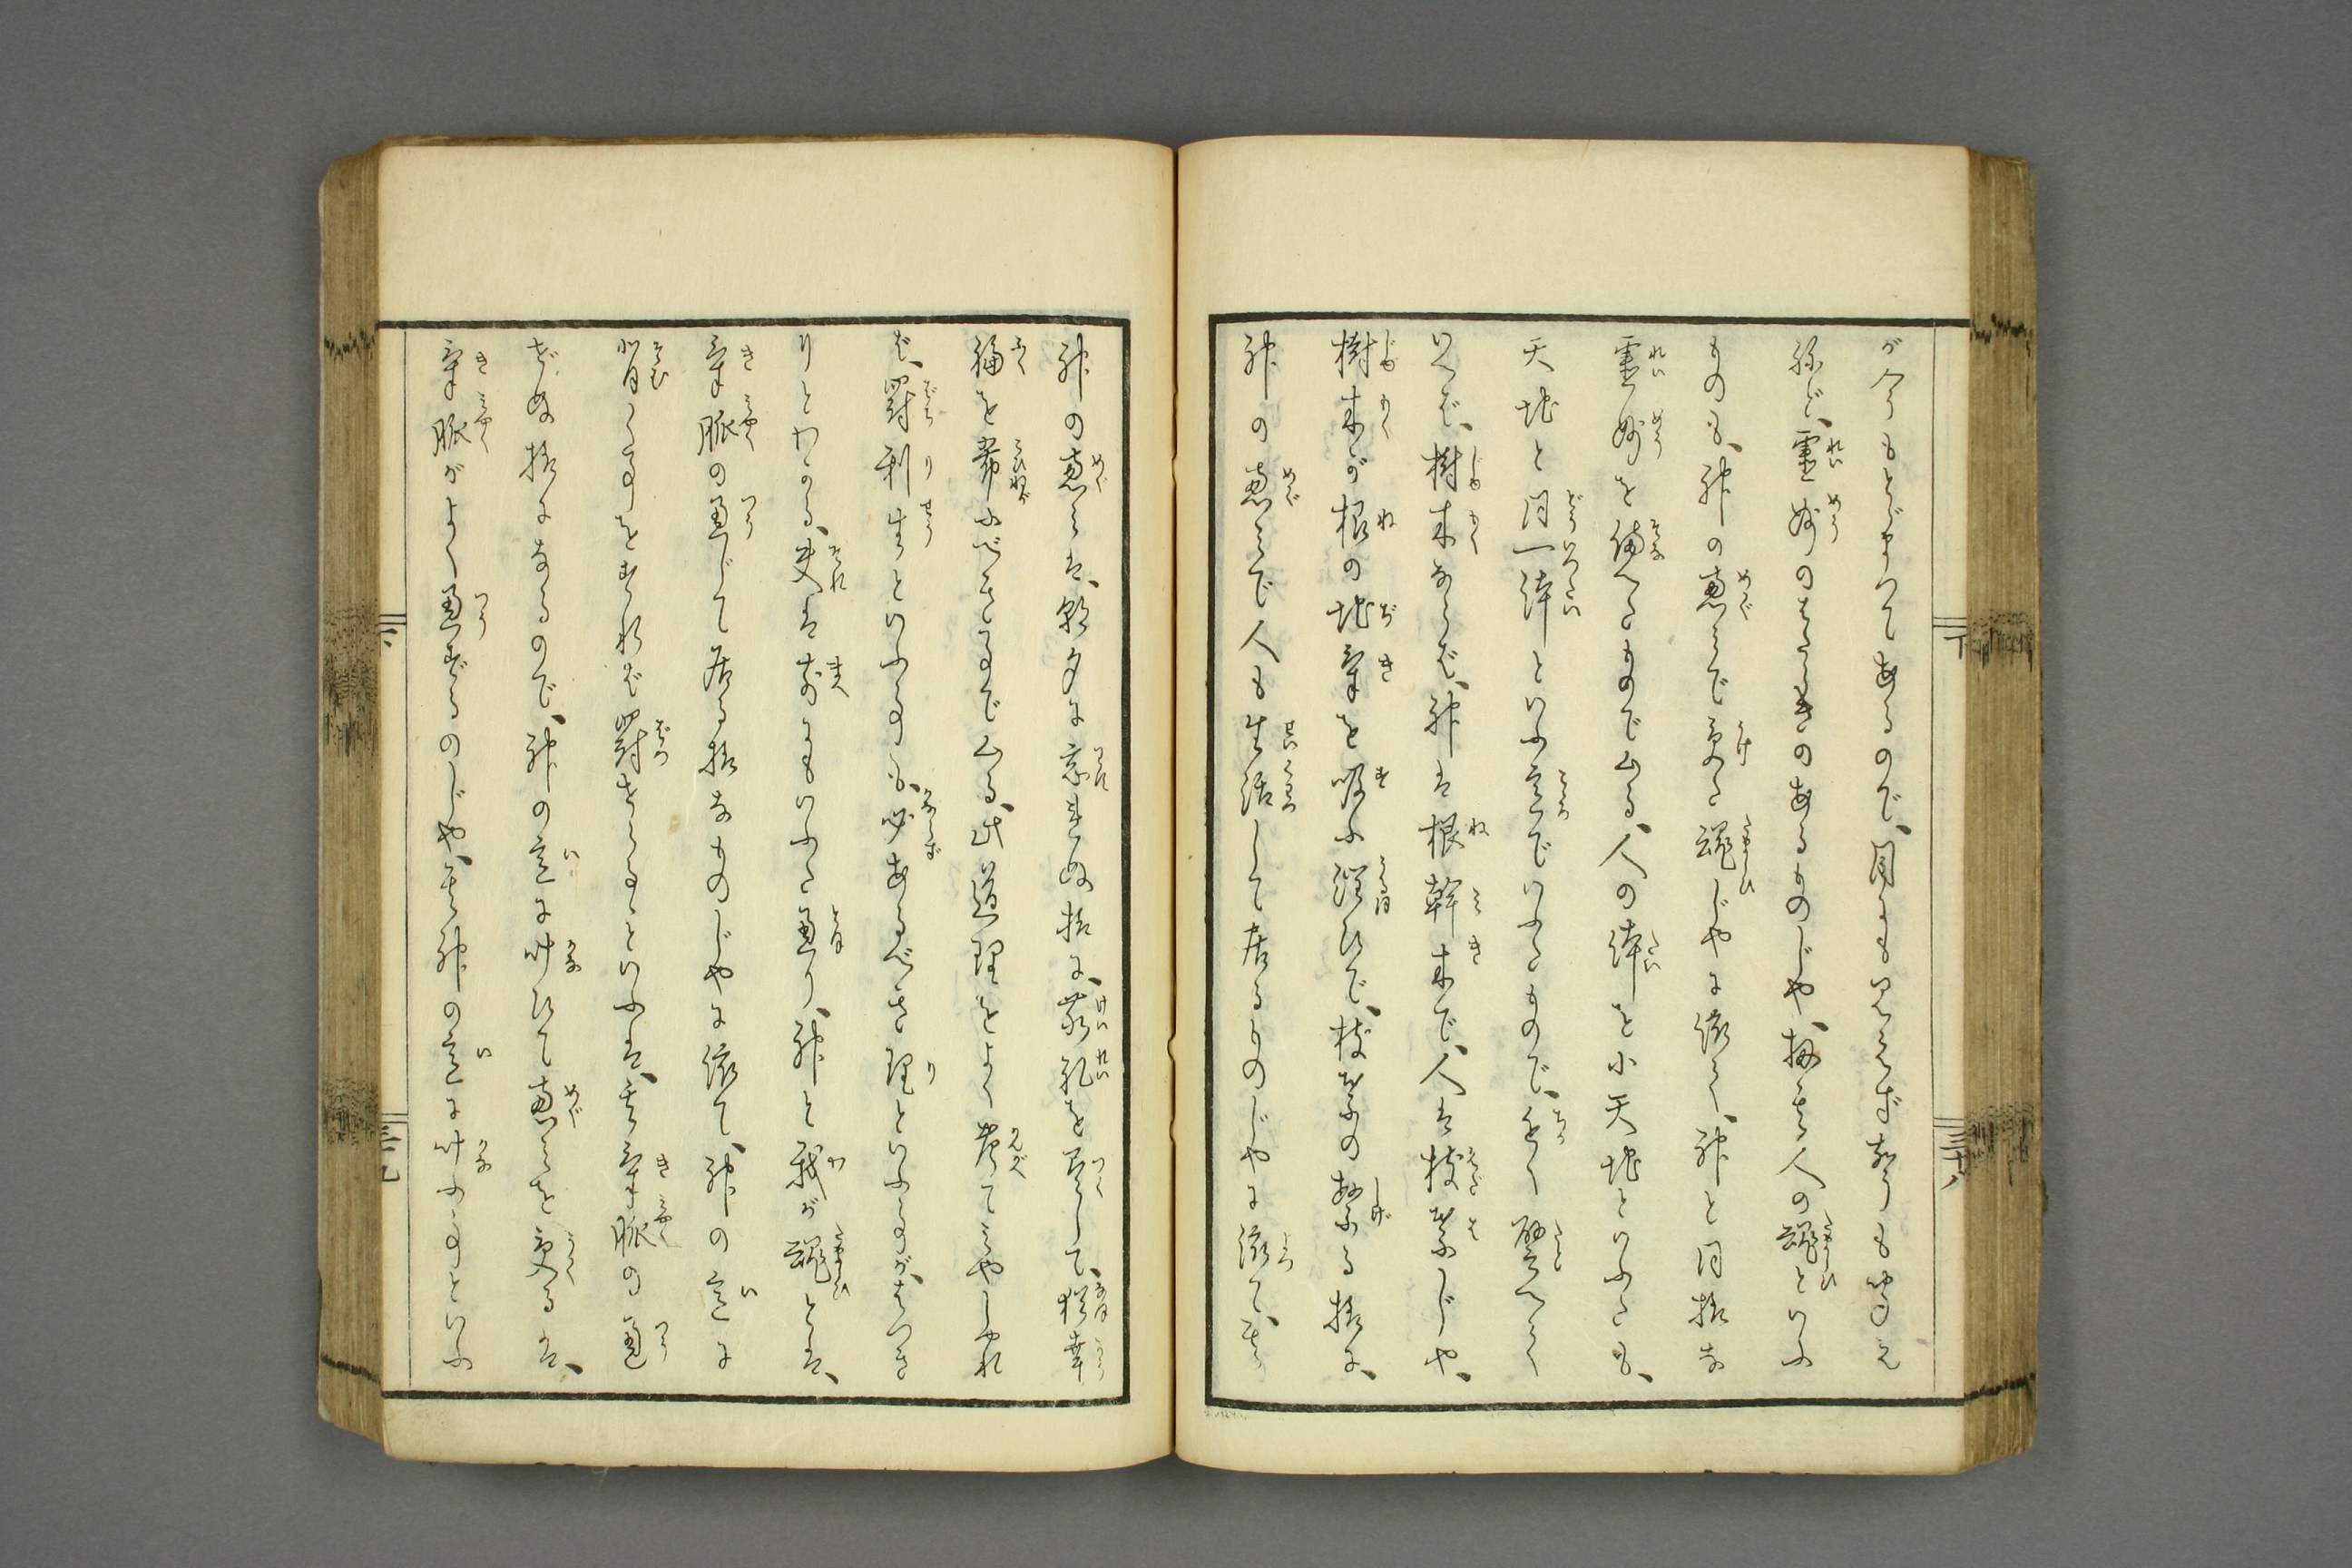 が今にもとゞまつてあるので、目にも見えず 声にも聞え
ねど、霊妙のはたらきのあるものじや、扨其人の魂といふ
ものも、神の恵みで受た魂じやに依て、神と同様な
霊妙を備へたものでムる、人の体を小天地といふたも、
天地と同一体といふ意でいふたもので、近く譬へて
いへば、樹木ならば、神は根幹木で、人は枝葉じや、
樹木が根の地気を吸ふ潤ひで、枝葉の繁る様に、
神の恵みで人も生活して居るものじやに依て、其
神の恵みは、朝夕に忘れぬ様に、敬礼を尽して、猶幸
福を希ふべき事でムる、此道理をよく考てみやしやれ
ば、罰利生といふ事も、必あるべき理といふ事が、はつき
りとわかる、夫は前にもいふた通り、神と我が魂とは、
気脈の通じて居る様なものじやに依て、神の意に
背くことをすれば罰せらるゝといふは、其気脈の通
ぜぬ様になるので、神の意に叶ひて恵みを受るは、
気脈がよく通ずるのじや、其神の意に叶ふ事といふ
下
三十八
三十九